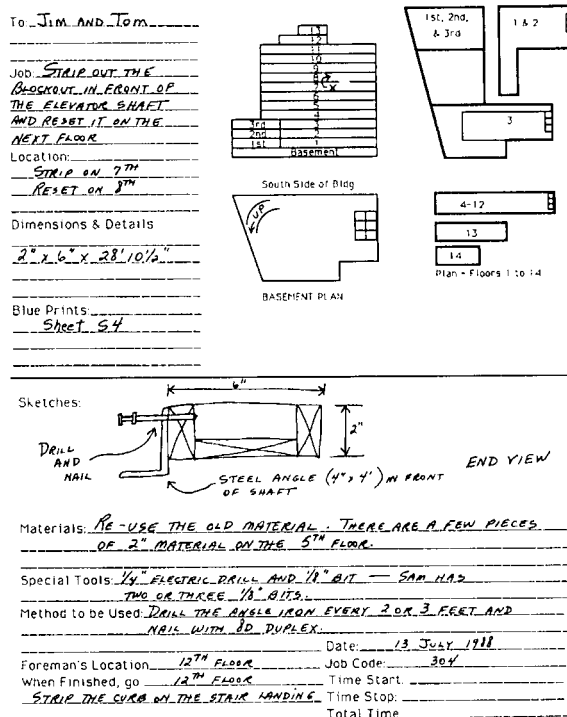 To: JIM AND TOM
Job: STRIP OUT THE
BLOCKOUT IN FRONT OF
THE ELEVATOR SHAFT
AND RESET IT ON THE
NEXT FLOOR
Location:
STRIP ON 7TH
RESET ON 8TH
Dimensions & Details
2" x 6" x 28' 10 1/2"
Blue Prints:
Sheet S4
13
12
11
10
9
8
7
6
5
4
3rd 3
2nd 2
1st 1
Basement
South Side of Bldg
UP
BASEMENT PLAN
1st, 2nd,
& 3rd
1 & 2
3
4-12
13
14
Plan - Floors 1 to 14
Sketches:
6"
2"
DRILL
AND
NAIL
STEEL ANGLE (4" x 4') IN FRONT
OF SHAFT
END VIEW
Materials: RE-USE THE OLD MATERIAL. THERE ARE A FEW PIECES
OF 2" MATERIAL ON THE 5TH FLOOR.
Special Tools: 1/4" ELECTRIC DRILL AND 1/8" BIT — SAM HAS
TWO OR THREE 1/8" BITS.
Method to be Used: DRILL THE ANGLE IRON EVERY 2 OR 3 FEET AND
NAIL WITH 8D DUPLEX.
Date: 13 JULY 1988
Foreman's Location 12TH FLOOR
Job Code: 304
When Finished, go 12TH FLOOR
Time Start:
STRIP THE CURB ON THE STAIR LANDING
Time Stop:
Total Time